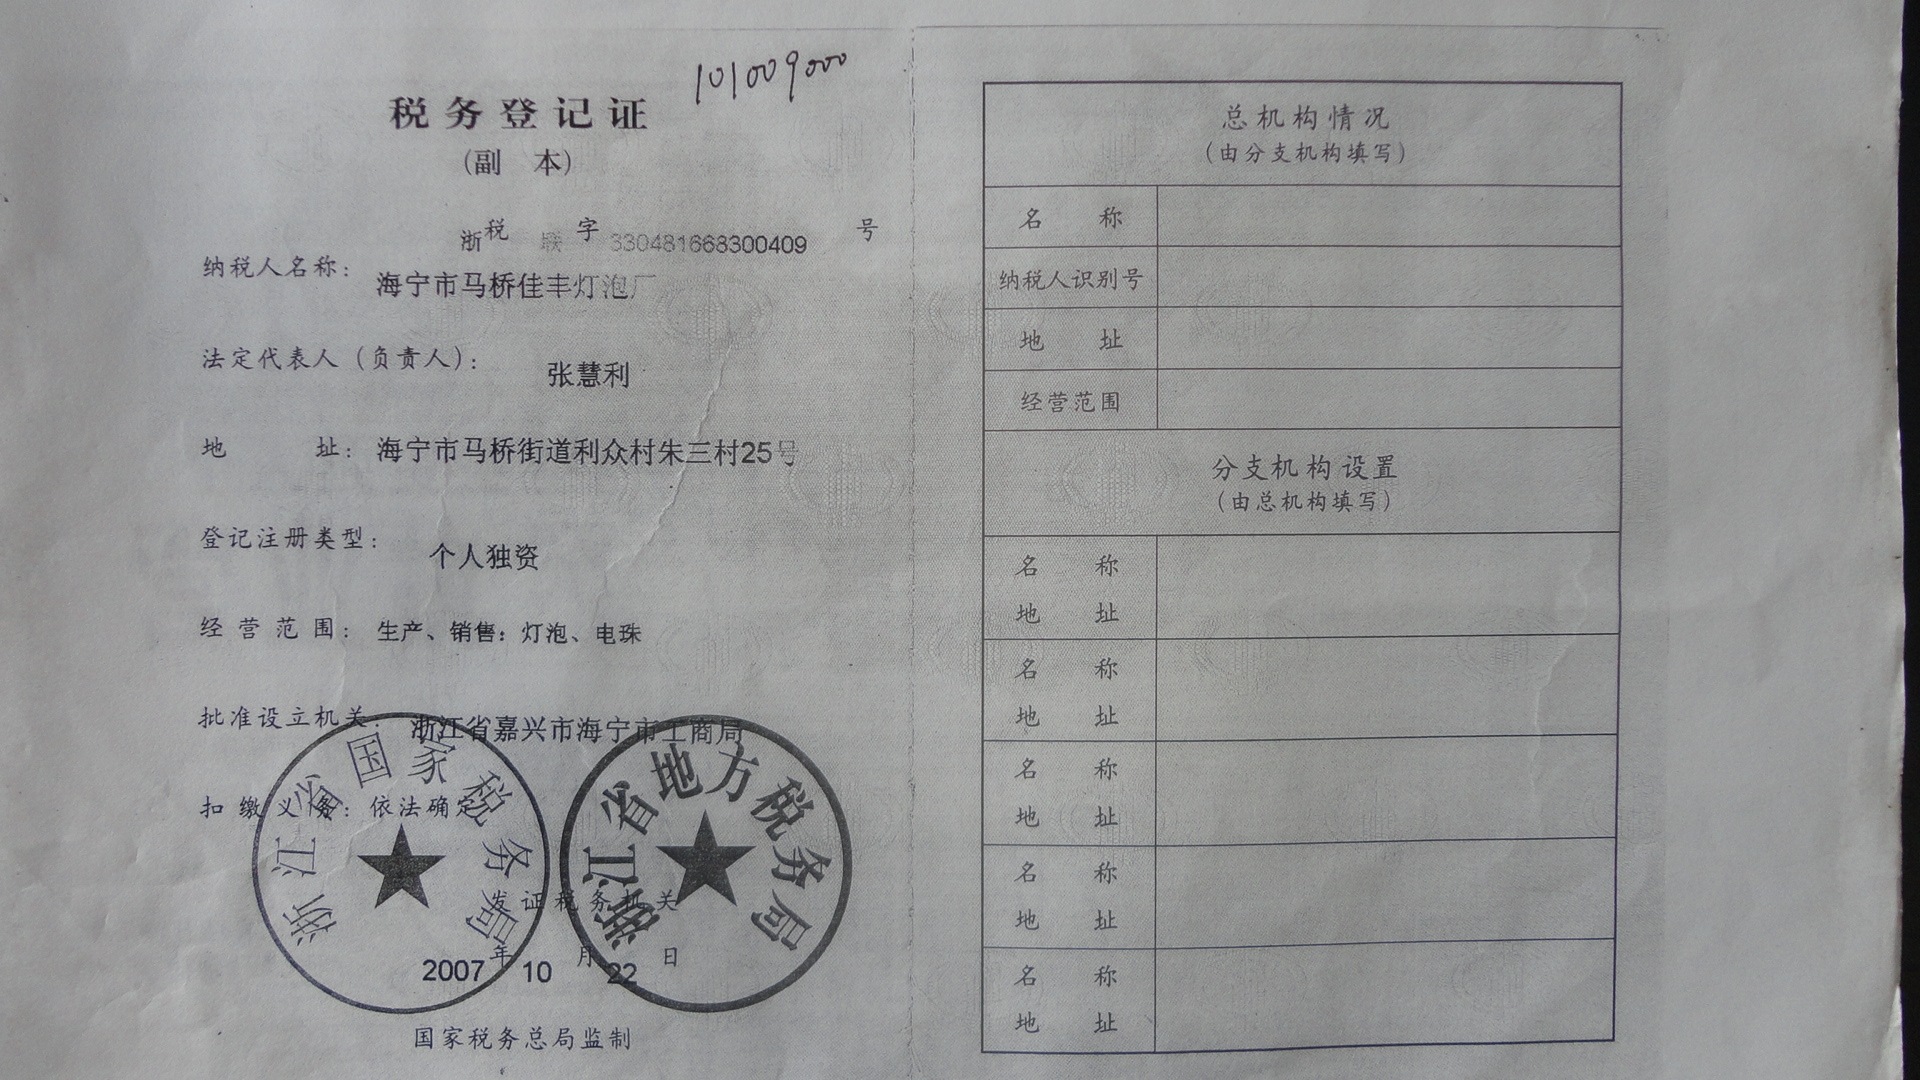 101009000
税务登记证
(副 本)
浙税 联 字 330481668300409 号
纳税人名称: 海宁市马桥佳丰灯泡厂
法定代表人(负责人): 张慧利
地 址: 海宁市马桥街道利众村朱三村25号
登记注册类型: 个人独资
经营范围: 生产、销售: 灯泡、电珠
批准设立机关: 浙江省嘉兴市海宁市工商局
扣缴义务: 依法确定
浙江省国家税务局
浙江省地方税务局
发证税务机关
2007年 10月 22日
国家税务总局监制
总机构情况
(由分支机构填写)
名 称
纳税人识别号
地 址
经营范围
分支机构设置
(由总机构填写)
名 称
地 址
名 称
地 址
名 称
地 址
名 称
地 址
名 称
地 址